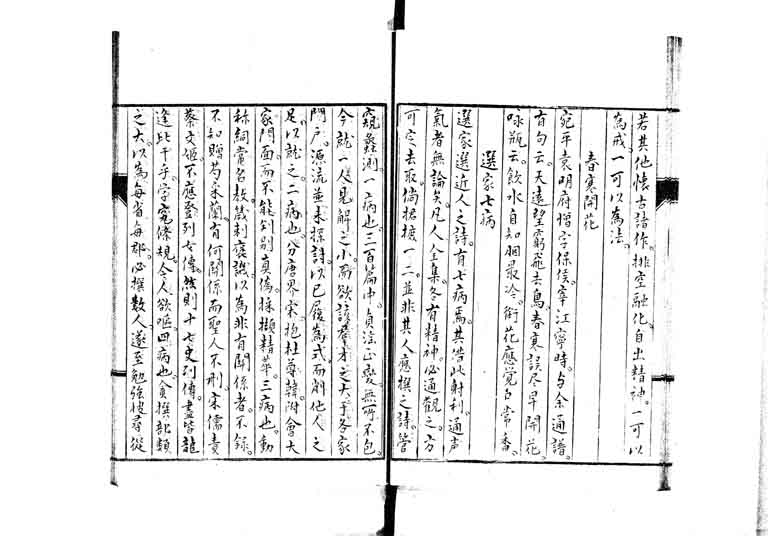 若其他懷古諸作。排空融化。自出精神。一可以
為戒。一可以為法。
春寒開花
宛平袁明府增字保侯。宰江寧時。与余通譜
有句云。天遠望窮飛去鳥。春寒誤尽早開花。
咏瓶云。飲水自知胭最冷。銜花應覺口常香。
選家七病
選家選近人之詩。有七病焉。其借此射利。通声
氣者無論矣。凡人全集。各有精神。必通觀之。方
可定去取。倘捃摭一二。並非其人應撰之詩。管
窺蠡測。一病也。三百篇中。貞淫正變。無所不包
今就一人見解之小。而欲該羣才之大。于各家
門戶。源流並未探討。以已履為式。而削他人之
足。以就之。二病也。分唐界宋。抱杜尊韓。附會大
家門面。而不能判別真偽。採擷精華。三病也。動
称綱常名教。箴刺褒譏。以為非有関係者。不録。
不知贈芍采蘭。有何関係。而聖人不刪。宋儒責
蔡文姬。不應登列女傳。然則十七史列傳。盡皆龍
逢比干乎。学究條規。令人欲嘔。四病也。貪撰部類
之大。以為每省每郡。必撰数人。遂至勉強搜尋。從